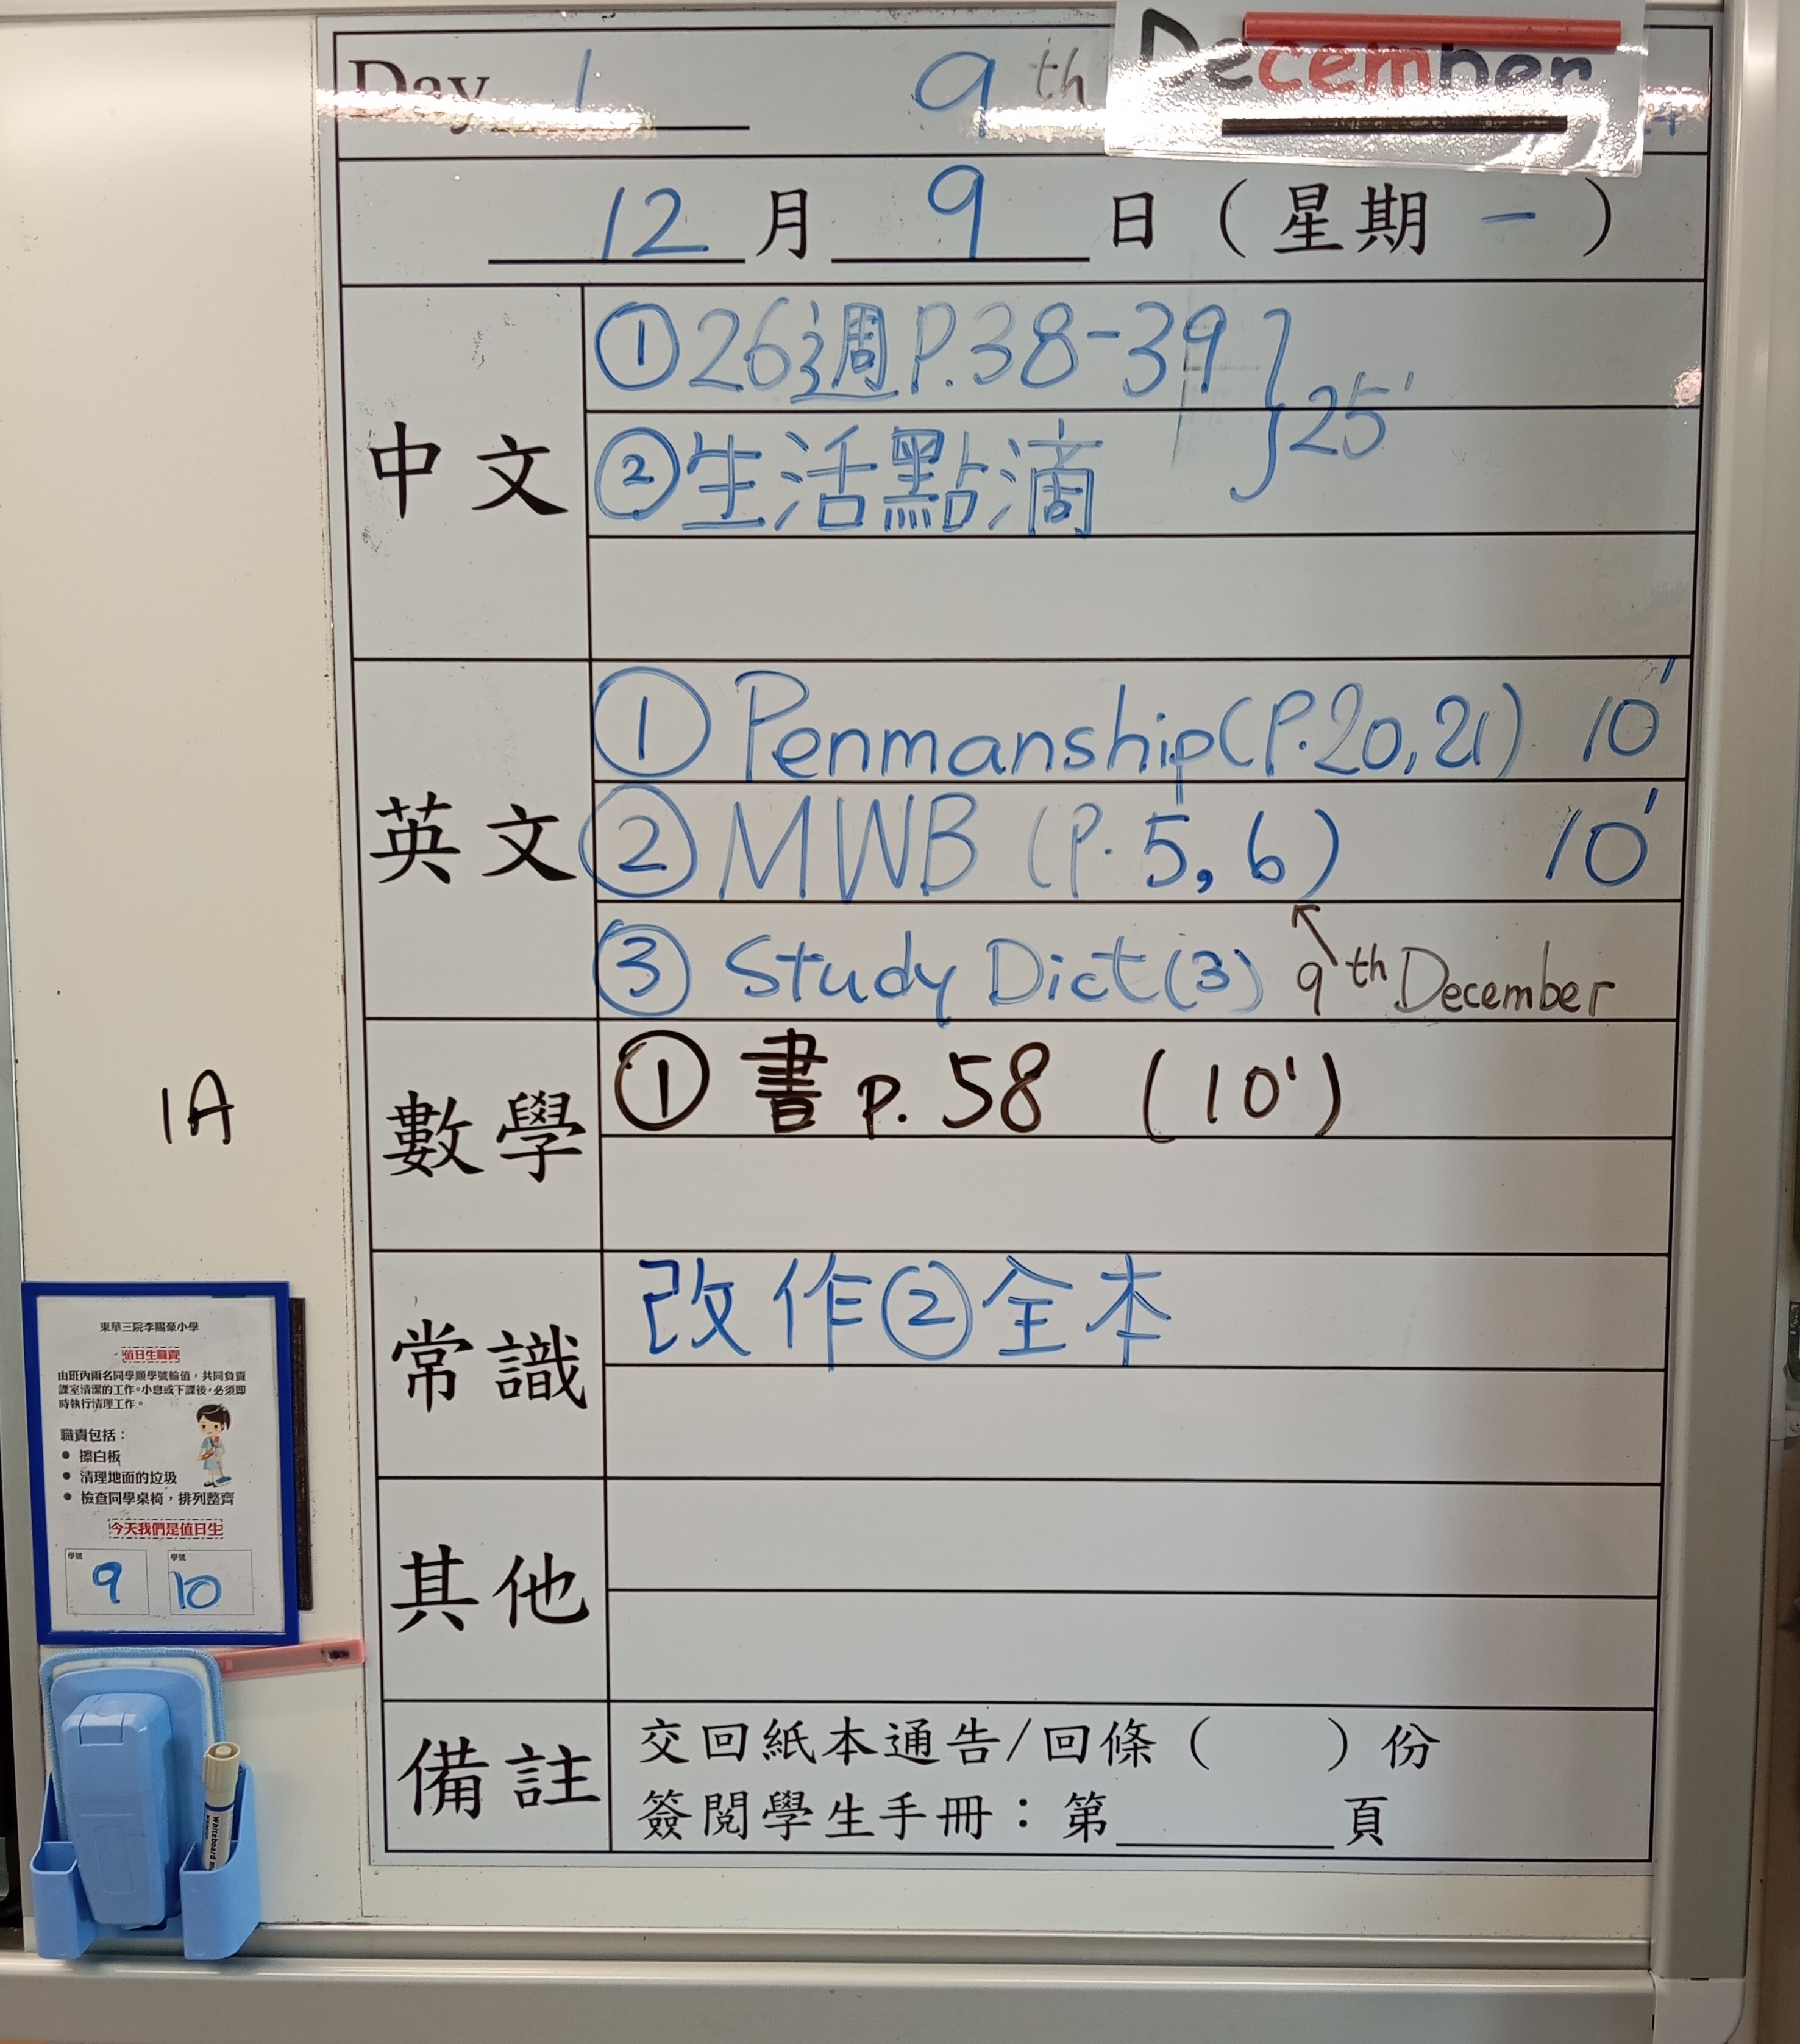 Day 1 9th December
12月9日（星期一）
中文
①26週P.38-39
②生活點滴
25'
英文
①Penmanship(P.20,21) 10'
②MWB (P.5,6) 10'
③Study Dict(3) 9th December
數學
①書p.58 (10')
常識
改作②全本
其他
備註
交回紙本通告/回條（ ）份
簽閱學生手冊：第______頁
1A
東華三院李賜豪小學
值日生職責
由班內兩名同學順學號輪值，共同負責
課室清潔的工作。小息或下課後，必須即
時執行清理工作。
職責包括：
● 擦白板
● 清理地面的垃圾
● 檢查同學桌椅，排列整齊
今天我們是值日生
學號 學號
9 10
Whiteboard